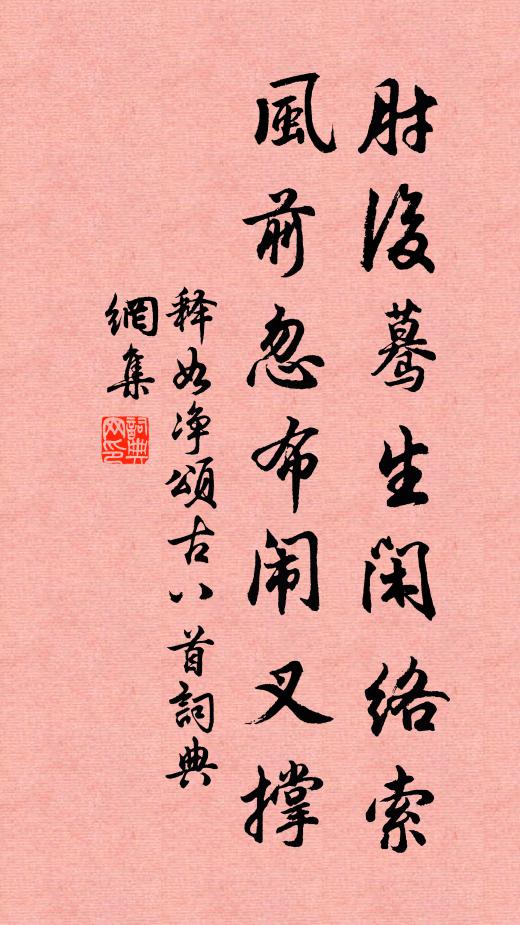 肘後驀生閑絡索
風前忽布闹叉撑
释如净頌古八首詞典
網集
詞典
网印